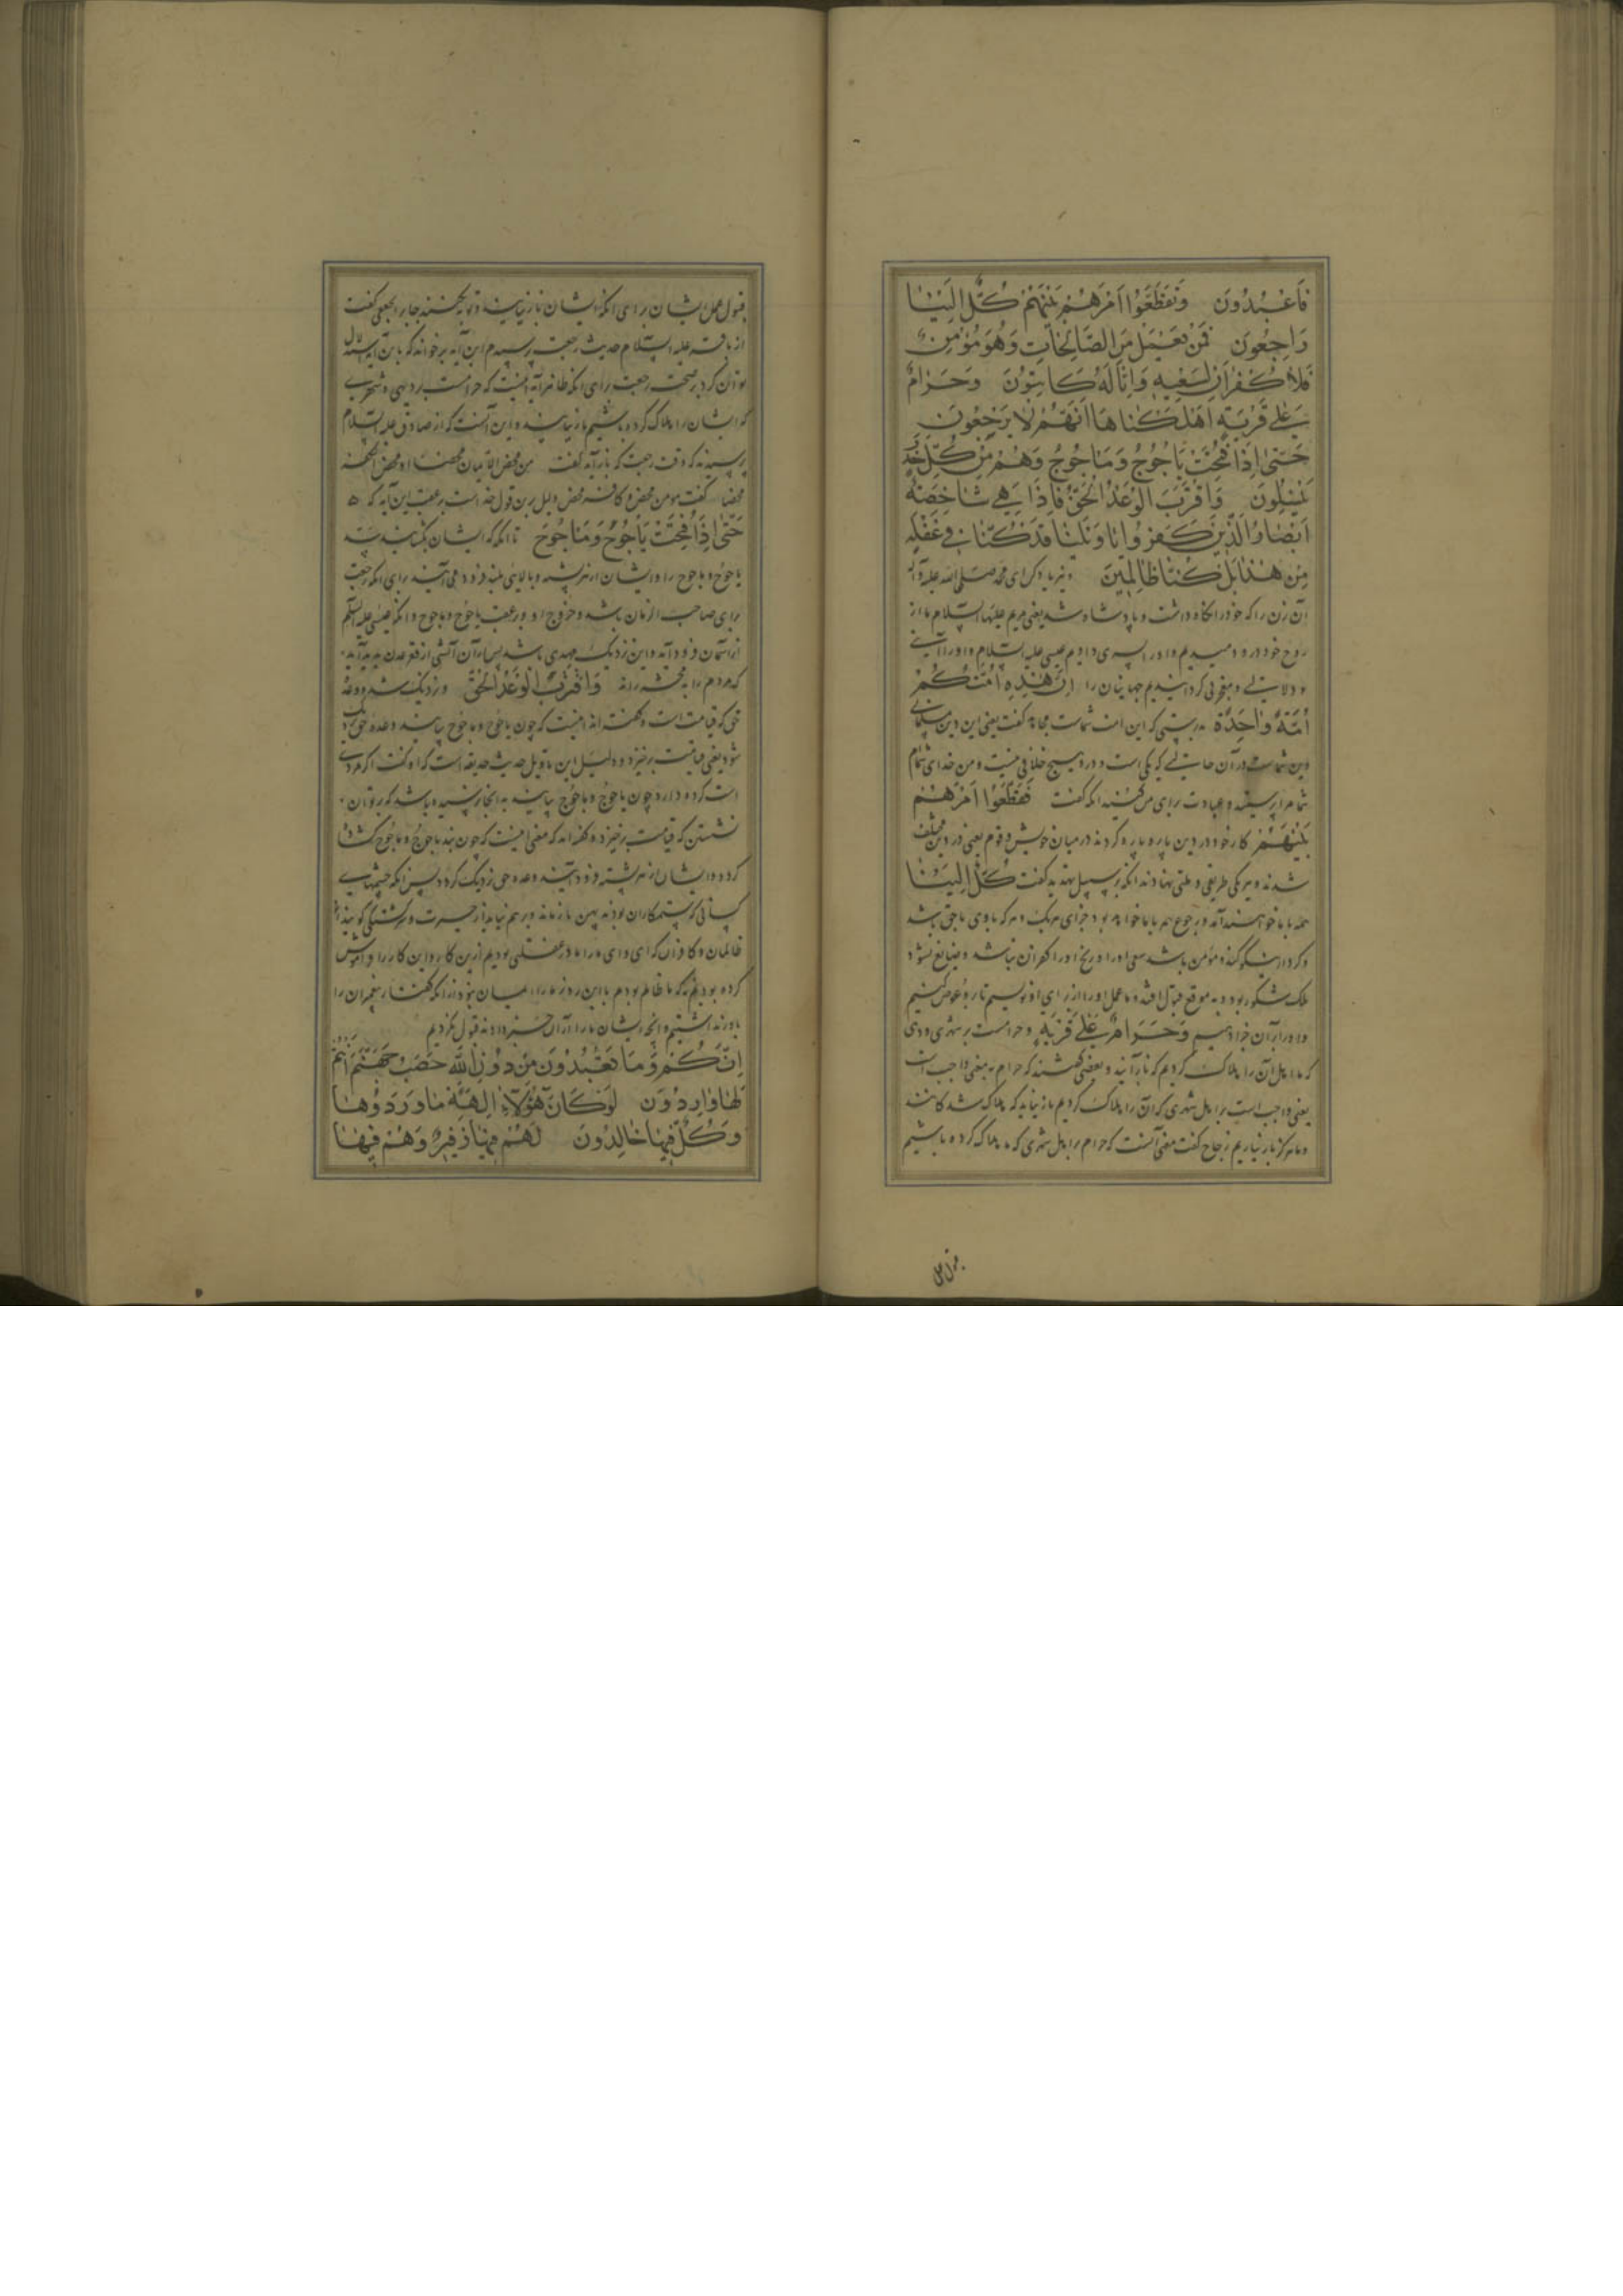 فَاعْبُدُونَ وَتَقَطَّعُوا اَمْرَهُمْ بَيْنَهُمْ كُلٌّ اِلَيْنَا
رَاجِعُونَ فَمَنْ يَعْمَلْ مِنَ الصَّالِحَاتِ وَهُوَ مُؤْمِنٌ
فَلَا كُفْرَانَ لِسَعْيِهِ وَاِنَّا لَهُ كَاتِبُونَ وَحَرَامٌ
عَلٰى قَرْيَةٍ اَهْلَكْنَاهَا اَنَّهُمْ لَا يَرْجِعُونَ
حَتّٰى اِذَا فُتِحَتْ يَاْجُوجُ وَمَاْجُوجُ وَهُمْ مِنْ كُلِّ حَدَبٍ
يَنْسِلُونَ وَاقْتَرَبَ الْوَعْدُ الْحَقُّ فَاِذَا هِيَ شَاخِصَةٌ
اَبْصَارُ الَّذِينَ كَفَرُوا يَا وَيْلَنَا قَدْ كُنَّا فِي غَفْلَةٍ
مِنْ هٰذَا بَلْ كُنَّا ظَالِمِينَ و نیز یاد کن ای محمد صلی الله علیه و آله
آن زن را که خود را نگاه داشت و پادشاه شد یعنی مریم علیها السلام ما از
روح خود در او دمیدیم و او را پسری دادیم عیسی علیه السلام و او را آیتی
و دلالتی و معجزی گردانیدیم جهانیان را اِنَّ هٰذِهِ اُمَّتُكُمْ
اُمَّةً وَاحِدَةً بدرستی که این امت شماست مجاهد گفت یعنی این دین مسلمانی
دین شماست در آن حالتی که یکی است و در او هیچ خلافی نیست و من خدای شماام
شما مرا پرستید و عبادت برای من کنید آنکه گفت فَتَقَطَّعُوا اَمْرَهُمْ
بَيْنَهُمْ کار خود در دین پاره پاره کردند در میان خویش و قوم یعنی در دین مختلف
شدند و هر یکی طریقی و ملتی نهادند آنکه بر سبیل تهدید گفت كُلٌّ اِلَيْنَا
همه با ما خواهند آمد و رجوع همه با ما خواهد بود جزای هر یک
و کردار نیکو کند و مؤمن باشد سعی او را و رنج او را کفران نباشد و ضایع نشود
بلک مشکور بود و به موقع قبول افتد و ما عمل او را از برای او نویسیم تا او را عوض کنیم
و او را بر آن جزا دهیم وَحَرَامٌ عَلٰى قَرْيَةٍ و حرامست بر شهری و دهی
که ما اهل آن را هلاک کردیم که باز آیند و بعضی گفتند که حرام به معنی واجب است
یعنی واجب است بر اهل شهری که آن را هلاک کردیم باز نیاید که هلاک شدگانند
و ما هرگز باز نیاریم زجاج گفت معنی آنست که حرام بر اهل شهری که ما هلاک کرده باشیم
قبول عمل
قبول عمل ایشان برای آنکه ایشان باز نیایند و توبه نکنند جابر جعفی گفت
از باقر علیه السلام حدیث رجعت پرسیدم این آیه برخواند که باین آیه استدلال
توان کرد بر صحت رجعت برای آنکه ظاهر آیه اینست که حرامست بر دیهی و شهری
که ایشان را هلاک کرده باشیم باز نیایند و این آنست که از صادق علیه السلام
پرسیدند که وقت رجعت که باز آید گفت من محض الایمان محضا او محض الکفر
محضا گفت مومن محض و کافر محض و دلیل بر این قول خداست بر عقب این آیه که
حَتّٰى اِذَا فُتِحَتْ يَاْجُوجُ وَمَاْجُوجُ تا آنکه که ایشان بگشایند سد
یاجوج و ماجوج را و ایشان از هر پشته و بالای بلند فرود می آیند برای آنکه رجعت
برای صاحب الزمان باشد و خروج او در عقب یاجوج و ماجوج و آنکه عیسی علیه السلام
از آسمان فرود آید و این نزدیک مهدی باشد پس از آن آتشی از قعر عدن پدید آید
که مردم را به محشر راند وَاقْتَرَبَ الْوَعْدُ الْحَقُّ و نزدیک شد وعده
حق که قیامت است و گفته اند معنی اینست که چون یاجوج و ماجوج بیایند وعده حق نزدیک
شود یعنی قیامت برخیزد و دلیل این تاویل حدیث حذیفه است که او گفت اگر مردی
اسب کره دارد چون یاجوج و ماجوج بیایند به آنجا نرسیده باشد که بر توان
نشستن که قیامت برخیزد و گفته اند که معنی اینست که چون سد یاجوج و ماجوج گشاده
گردد و ایشان از هر پشته فرود آیند وعده حق نزدیک گردد پس آنکه چشمهای
کسانی که ستمکاران بودند پهن باز ماند و بر هم نیاید از حیرت و سرگشتگی گویند این
ظالمان و کافران که ای وای ما را ما در غفلتی بودیم از این کار و این کار را فراموش
کرده بودیم بلکه ما ظالم بودیم با این روز ما را ایمان نبود از آنکه گفتار پیغمبران را
باور نداشتیم و آنچه ایشان ما را از آن خبر دادند قبول نکردیم
اِنَّكُمْ وَمَا تَعْبُدُونَ مِنْ دُونِ اللّٰهِ حَصَبُ جَهَنَّمَ اَنْتُمْ
لَهَا وَارِدُونَ لَوْ كَانَ هٰؤُلَاءِ اٰلِهَةً مَا وَرَدُوهَا
وَكُلٌّ فِيهَا خَالِدُونَ لَهُمْ فِيهَا زَفِيرٌ وَهُمْ فِيهَا